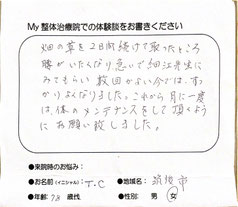 My 整体治療院での体験談をお書きください
畑の草を2日間続けて取ったところ
腰がいたくなり急いで細江先生に
みてもらい数回かよい今では、すっ
かりよくなりました。これから月に一度
は、体のメンテナンスをして頂くよう
にお願い致しました。
●来院時のお悩み:
●お名前(イニシャル): T.C ●地域名: 筑後市
●年齢: 78 歳代 ●性別: 男 女